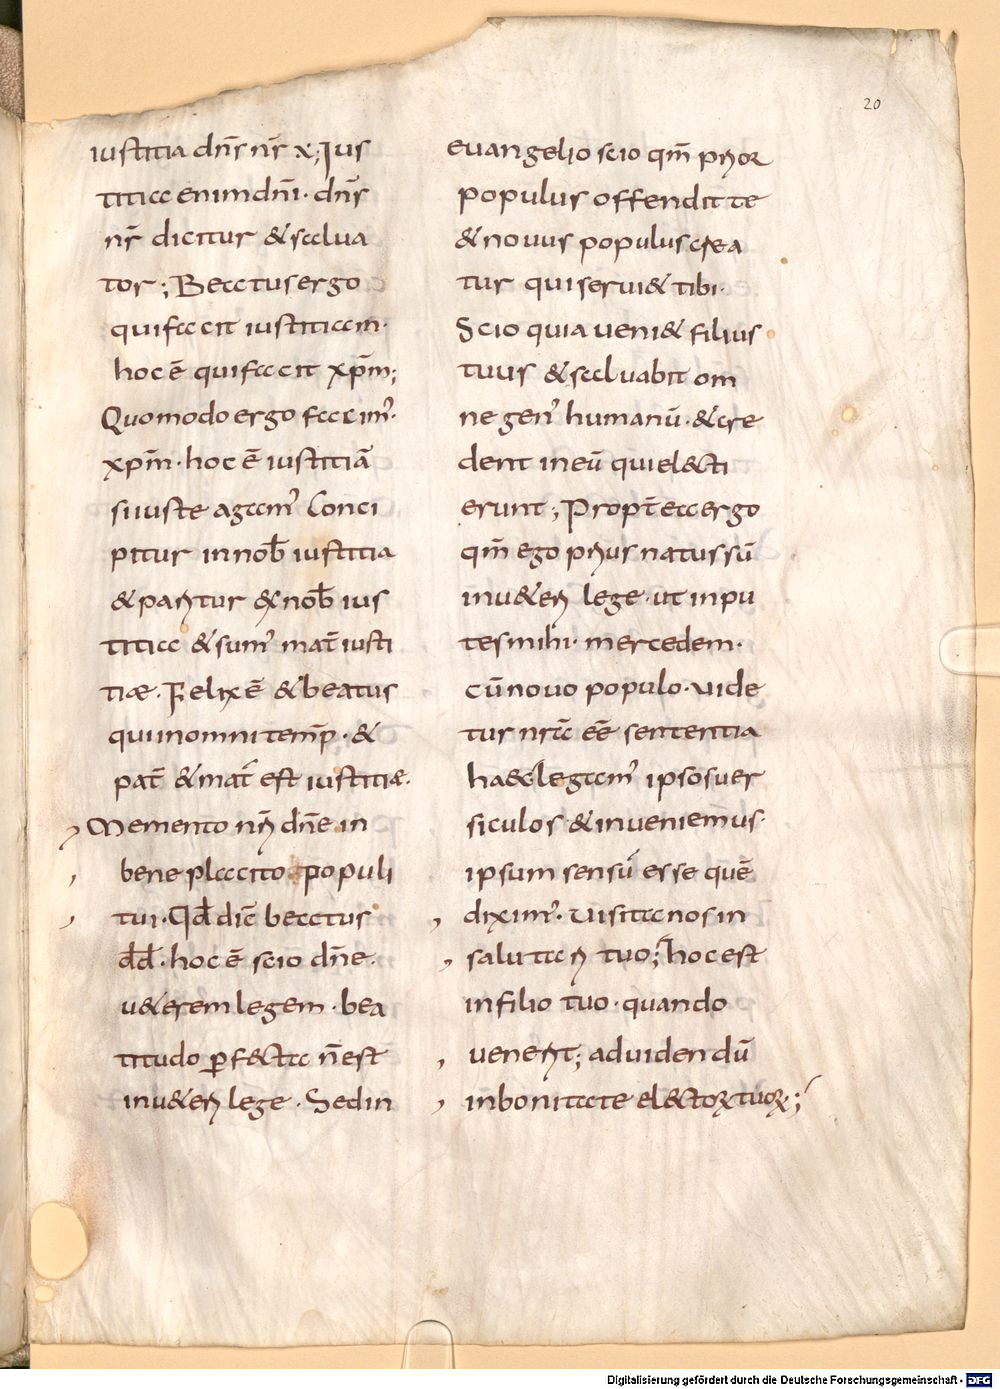 20
iustitia dn̅s nr̅ x; Ius
titia enim dn̅i · dn̅s
nr̅ dicitur & salua
tor; Beatus ergo
qui facit iustitiam ·
hoc ē qui facit xp̅m;
Quomodo ergo facim᾿ ·
xp̅m · hoc ē iustitiā
si iuste agam᾿ Conci
pitur in nob̅ iustitia
& paritur ex nob̅ ius
titia & sum᾿ mat̅ iusti
tiæ · Felix ē & beatus
qui in omni temp̅ · &
pat̅ & mat̅ est iustitiæ ·
Memento nr̅i dn̅e in
bene placito populi
tui · Qd̅ dic̅ beatus
dd̅ · hoc ē scio dn̅e ·
u&erem legem · bea
titudo ꝑf&ta n̅ est
in u&eri lege · Sed in
euangelio scio qm̅ prior
populus offendit te
& nouus populus crea
tur qui serui& tibi ·
Scio quia ueni& filius
tuus & saluabit om
ne gen᾿ humanū · & cre
dent in eū qui electi
erunt; Propt̅ ea ergo
qm̅ ego prius natus sū
in u&eri lege · ut inpu
tes mihi · mercedem ·
cū nouo populo · uide
tur nr̅a eē sententia
haec legam᾿ ipsos uer
siculos · & inueniemus ·
ipsum sensū esse quē
dixim᾿ · Uisita nos in
salutari tuo; hoc est
in filio tuo · quando
uenerit; ad uidendū
in bonitate electoꝝ tuoꝝ;
Digitalisierung gefördert durch die Deutsche Forschungsgemeinschaft - DFG